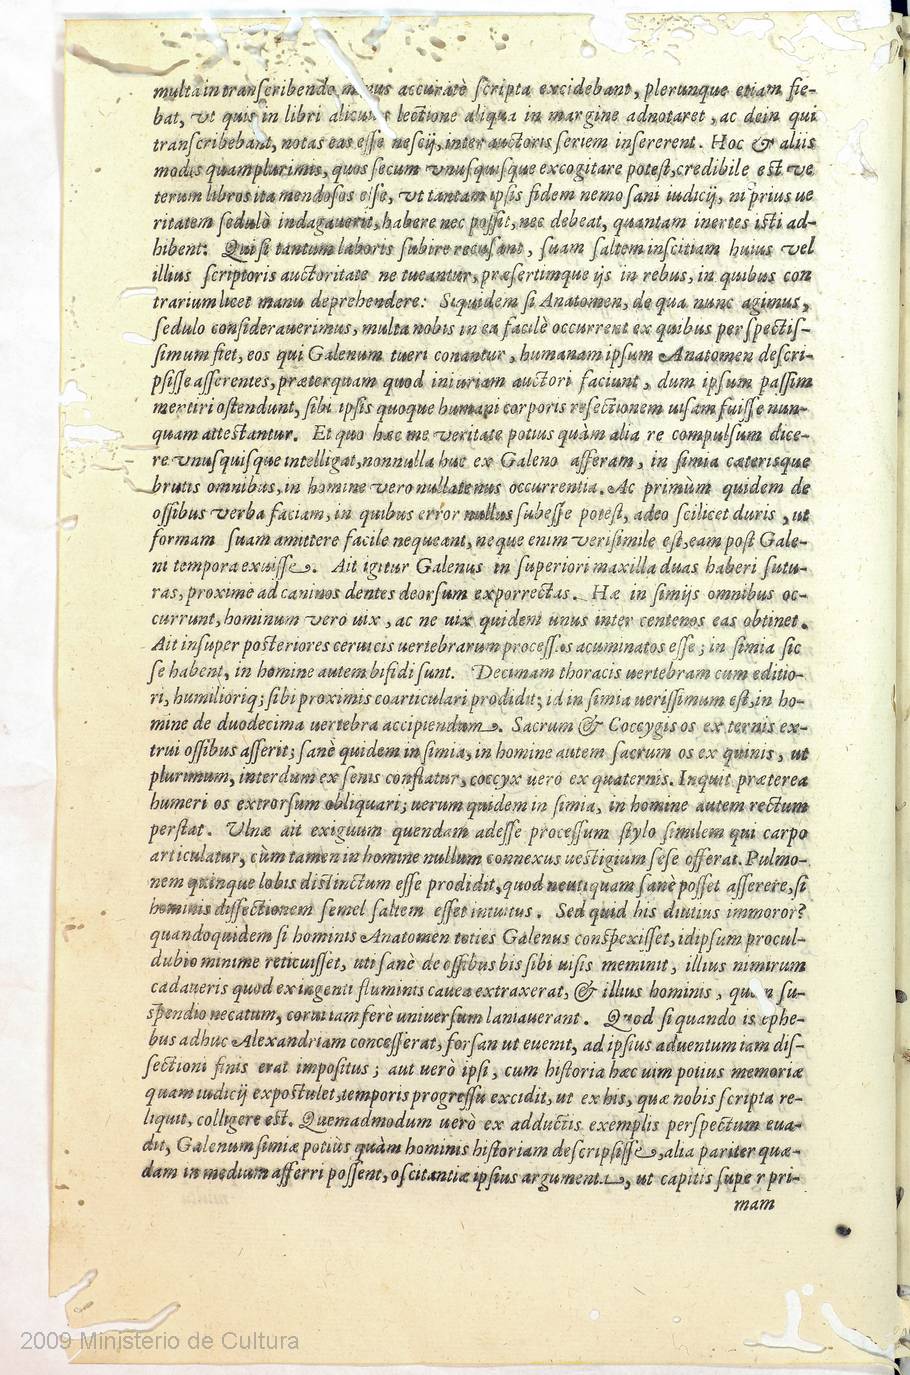 multa in transcribendo minus accuratè scripta excidebant, plerunque etiam fie-
bat, vt quis in libri alicuius lectione aliqua in margine adnotaret, ac dein qui
transcribebant, notas eas esse nescij, inter auctoris seriem insererent. Hoc & aliis
modis quamplurimis, quos secum vnusquisque excogitare potest, credibile est ve
terum libros ita mendosos esse, vt tantam ipsis fidem nemo sani iudicij, ni prius ue
ritatem sedulò indagauerit, habere nec possit, nec debeat, quantam inertes isti ad-
hibent: Qui si tantum laboris subire recusant, suam saltem inscitiam huius vel
illius scriptoris auctoritate ne tueantur, præsertimque ijs in rebus, in quibus con
trarium licet manu deprehendere: Siquidem si Anatomen, de qua nunc agimus,
sedulo considerauerimus, multa nobis in ea facilè occurrent ex quibus perspectis-
simum fiet, eos qui Galenum tueri conantur, humanam ipsum Anatomen descri-
psisse asserentes, præterquam quod iniuriam auctori faciunt, dum ipsum passim
mentiri ostendunt, sibi ipsis quoque humani corporis resectionem uisam fuisse nun-
quam attestantur. Et quo hæc me veritate potius quàm alia re compulsum dice-
re vnusquisque intelligat, nonnulla huc ex Galeno afferam, in simia cæterisque
brutis omnibus, in homine vero nullatenus occurrentia. Ac primùm quidem de
ossibus verba faciam, in quibus error nullus subesse potest, adeo scilicet duris, ut
formam suam amittere facile nequeant, neque enim verisimile est, eam post Gale-
ni tempora exuisse. Ait igitur Galenus in superiori maxilla duas haberi sutu-
ras, proxime ad caninos dentes deorsum exporrectas. Hæ in simijs omnibus oc-
currunt, hominum verò uix, ac ne uix quidem unus inter centenos eas obtinet.
Ait insuper posteriores ceruicis uertebrarum processus acuminatos esse; in simia sic
se habent, in homine autem bifidi sunt. Decimam thoracis uertebram cum editio-
ri, humilioriq; sibi proximis coarticulari prodidit; id in simia uerissimum est, in ho-
mine de duodecima uertebra accipiendum. Sacrum & Coccygis os ex ternis ex-
trui ossibus asserit; sanè quidem in simia, in homine autem sacrum os ex quinis, ut
plurimum, interdum ex senis conflatur, coccyx uerò ex quaternis. Inquit præterea
humeri os extrorsum obliquari; uerum quidem in simia, in homine autem rectum
perstat. Vlnæ ait exiguum quendam adesse processum stylo similem qui carpo
articulatur, cùm tamen in homine nullum connexus uestigium sese offerat. Pulmo-
nem quinque lobis distinctum esse prodidit, quod neutiquam sanè posset asserere, si
hominis dissectionem semel saltem esset intuitus. Sed quid his diutius immoror?
quandoquidem si hominis Anatomen toties Galenus conspexisset, idipsum procul-
dubio minime reticuisset, uti sanè de ossibus bis sibi uisis meminit, illius nimirum
cadaueris quod ex ingenti fluminis cauea extraxerat, & illius hominis, quem su-
spendio necatum, corui iam ferè uniuersum laniauerant. Quod si quando is ephe-
bus adhuc Alexandriam concesserat, forsan ut euenit, ad ipsius aduentum iam dis-
sectioni finis erat impositus; aut uerò ipsi, cum historia hæc uim potius memoriæ
quam iudicij expostulet, temporis progressu excidit, ut ex his, quæ nobis scripta re-
liquit, colligere est. Quemadmodum uerò ex adductis exemplis perspectum eua-
dit, Galenum simiæ potiùs quàm hominis historiam descripsisse, alia pariter quæ-
dam in medium afferri possent, oscitantiæ ipsius argumenta, ut capitis super pri-
mam
2009 Ministerio de Cultura